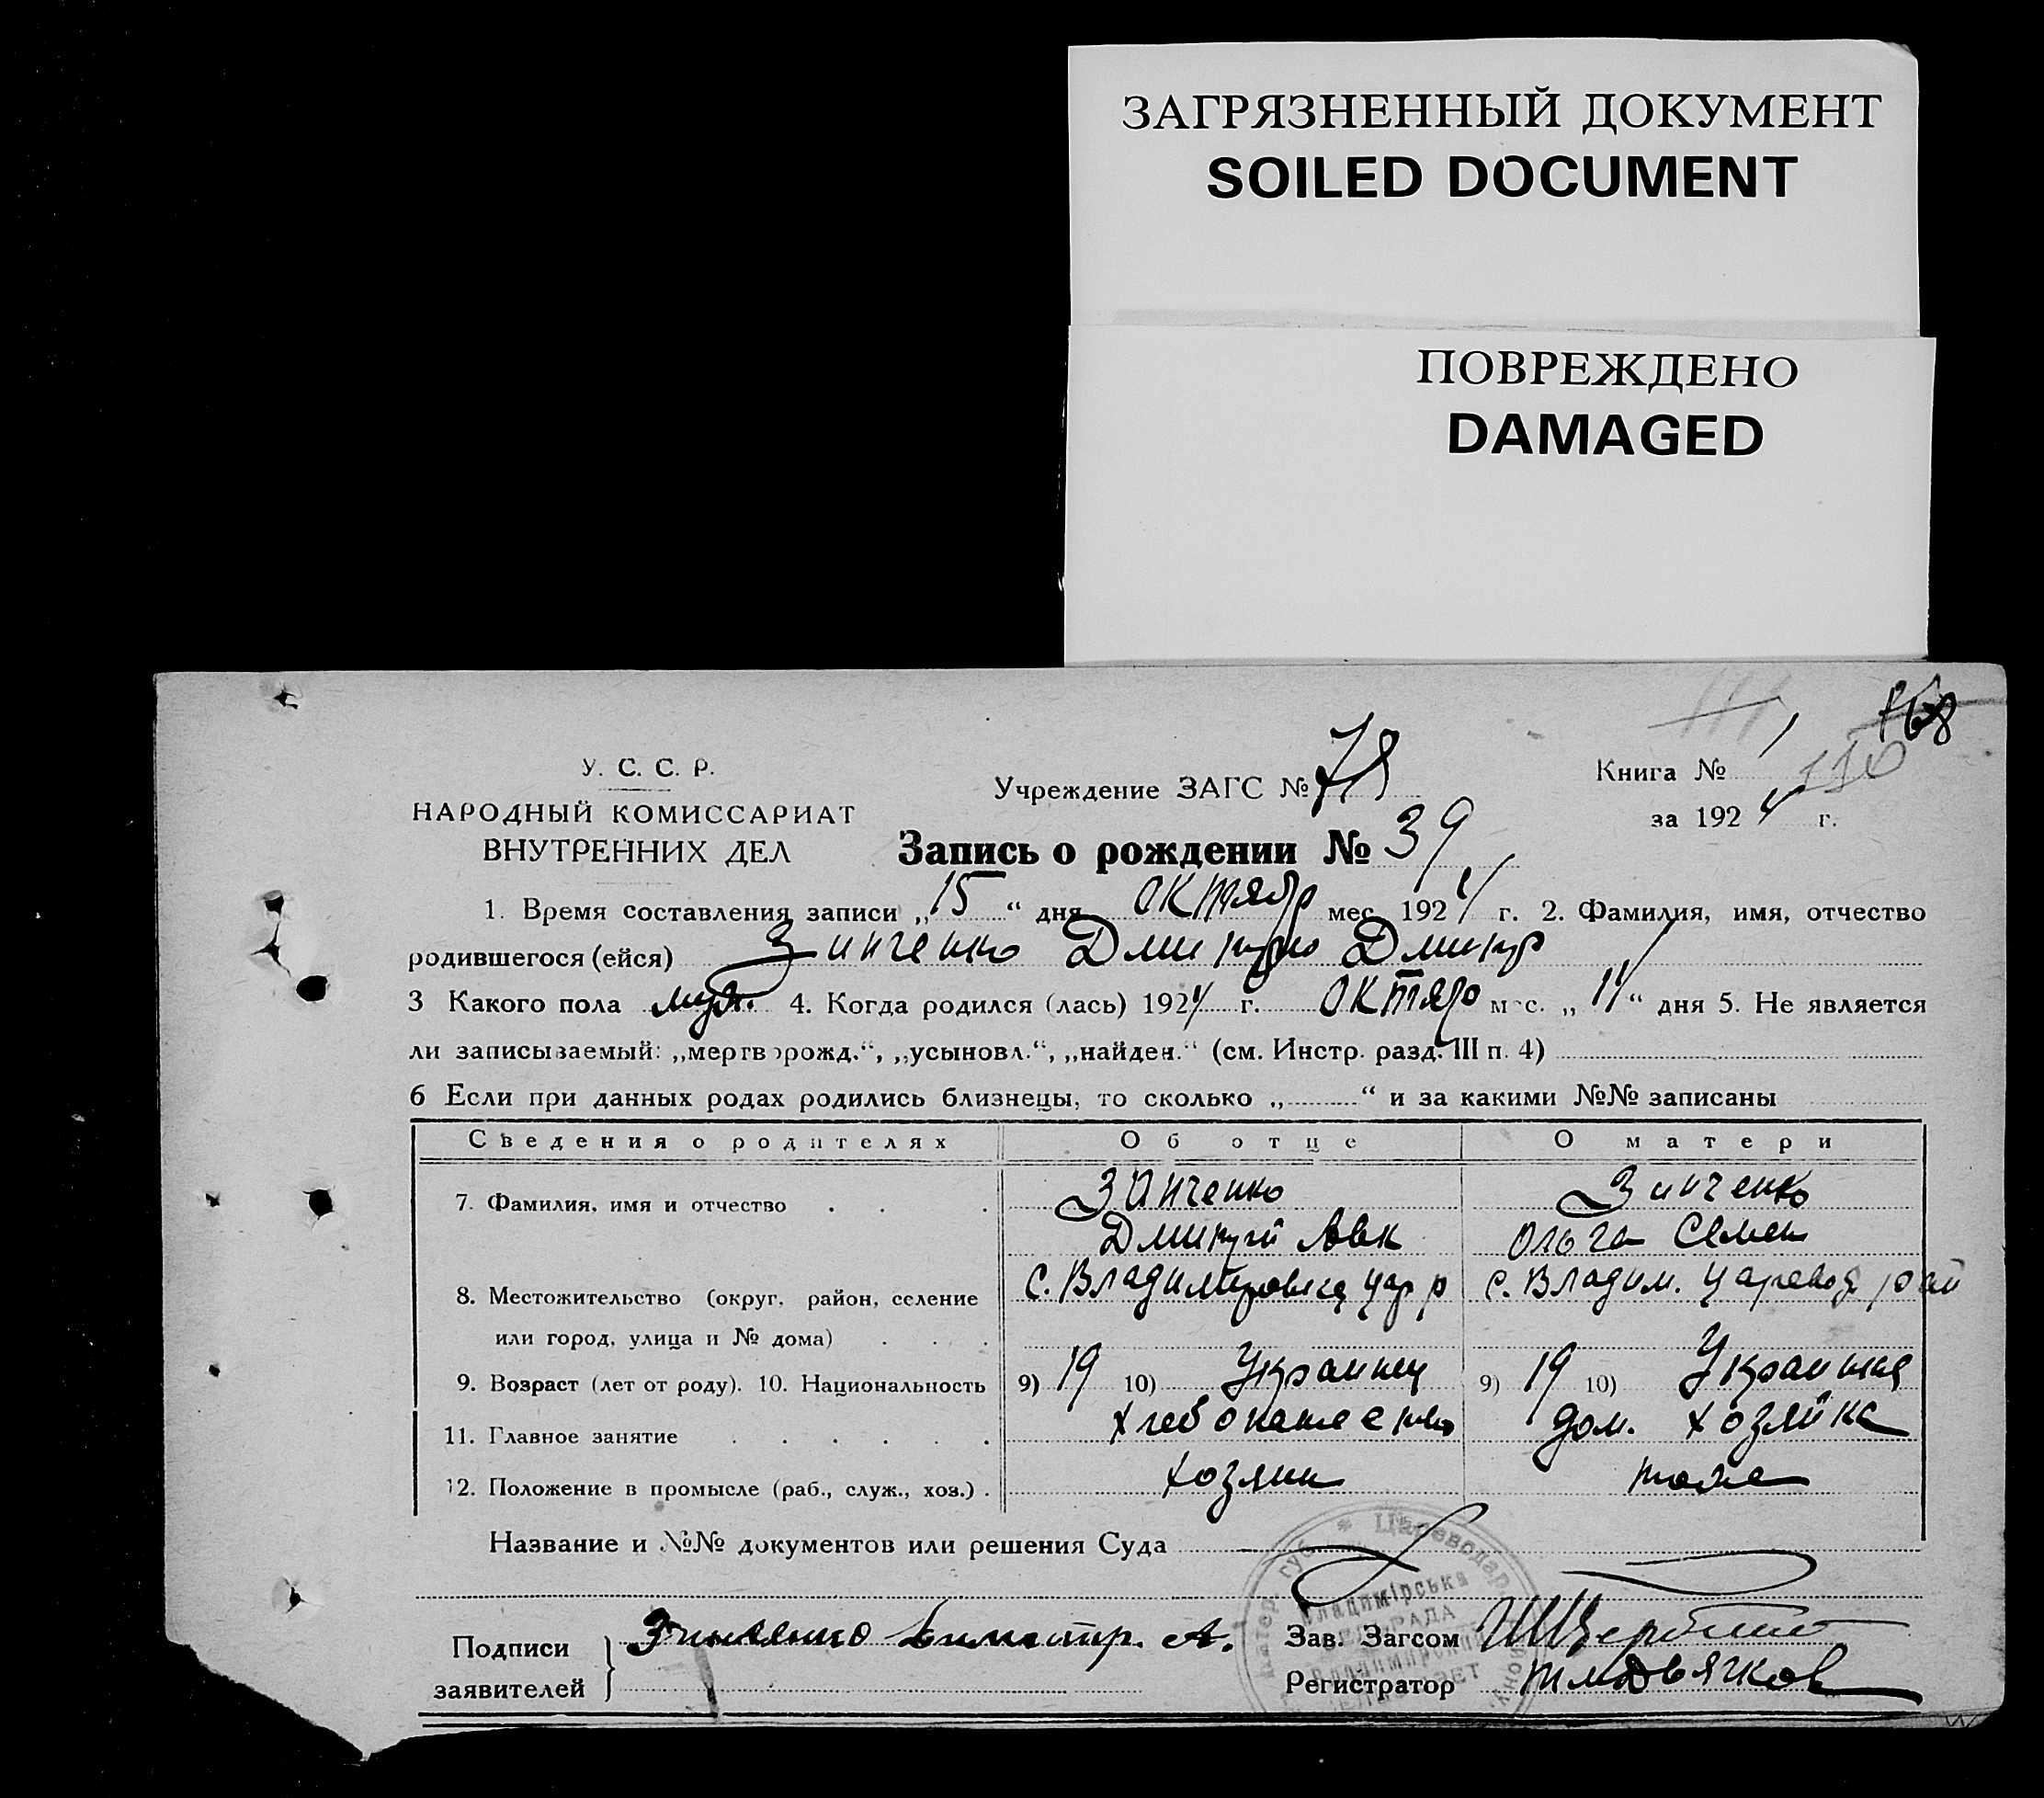 ЗАГРЯЗНЕННЫЙ ДОКУМЕНТ
SOILED DOCUMENT
ПОВРЕЖДЕНО
DAMAGED
168
110
У. С. С. Р.
НАРОДНЫЙ КОМИССАРИАТ
ВНУТРЕННИХ ДЕЛ
Учреждение ЗАГС № 78
Книга №
за 1924 г.
Запись о рождении № 39
1. Время составления записи „15“ дня октябр мес. 1924 г. 2. Фамилия, имя, отчество
родившегося (ейся) Зинченко Дмитро Дмитр
3 Какого пола муж. 4. Когда родился (лась) 1924 г. октяр мес. „11“ дня 5. Не является
ли записываемый: „мертворожд.“, „усыновл.“, „найден.“ (см. Инстр. разд. III п. 4)
6 Если при данных родах родились близнецы, то сколько „ “ и за какими №№ записаны
Сведения о родителях Об отце О матери
7. Фамилия, имя и отчество Зинченко Зинченко
Дмитрий Авк Ольга Семен
8. Местожительство (округ, район, селение с. Владимировка Цар р с. Владим. Царевод рай
или город, улица и № дома)
9. Возраст (лет от роду). 10. Национальность 9) 19 10) Украинц 9) 19 10) Украинка
11. Главное занятие хлебопашество дом. хозяйка
12. Положение в промысле (раб., служ., хоз.) хозяин тоже
Название и №№ документов или решения Суда
Подписи заявителей Зинченко Димитр. А.
Зав. Загсом
Регистратор Дьячков